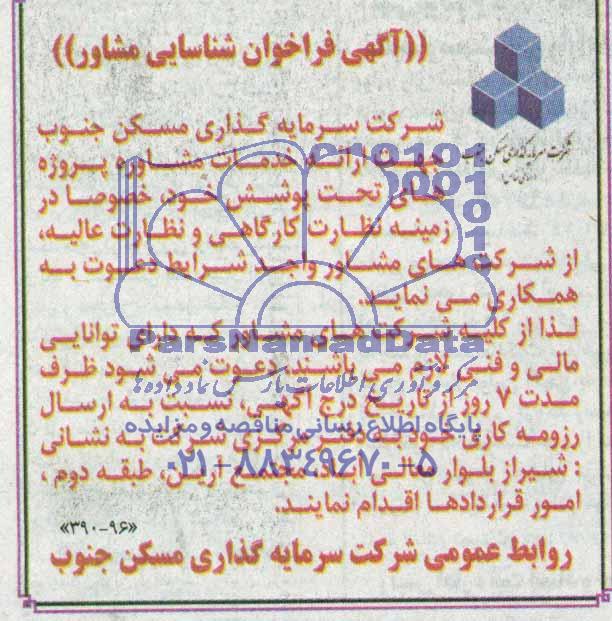 ((آگهی فراخوان شناسایی مشاور))
شرکت سرمایه گذاری مسکن جنوب
شرکت سرمایه گذاری مسکن جنوب
جهت ارائه خدمات مشاوره پروژه
های تحت پوشش خود، خصوصا در
زمینه نظارت کارگاهی و نظارت عالیه،
از شرکت های مشاور واجد شرایط دعوت به
همکاری می نماید.
لذا از کلیه شرکت های مشاور که دارای توانایی
ParsNamadData
مالی و فنی لازم می باشند دعوت می شود ظرف
مرکز فرآوری اطلاعات پارس نماد داده ها
مدت ۷ روز از تاریخ درج آگهی، نسبت به ارسال
پایگاه اطلاع رسانی مناقصه و مزایده
رزومه کاری خود به دفتر مرکزی شرکت به نشانی
: شیراز بلوار مجتمع طبقه دوم ،
۰۲۱-۸۸۳۴۹۶۷۰-۵
امور قراردادها اقدام نمایند.
«۳۹۰-۹۶»
روابط عمومی شرکت سرمایه گذاری مسکن جنوب